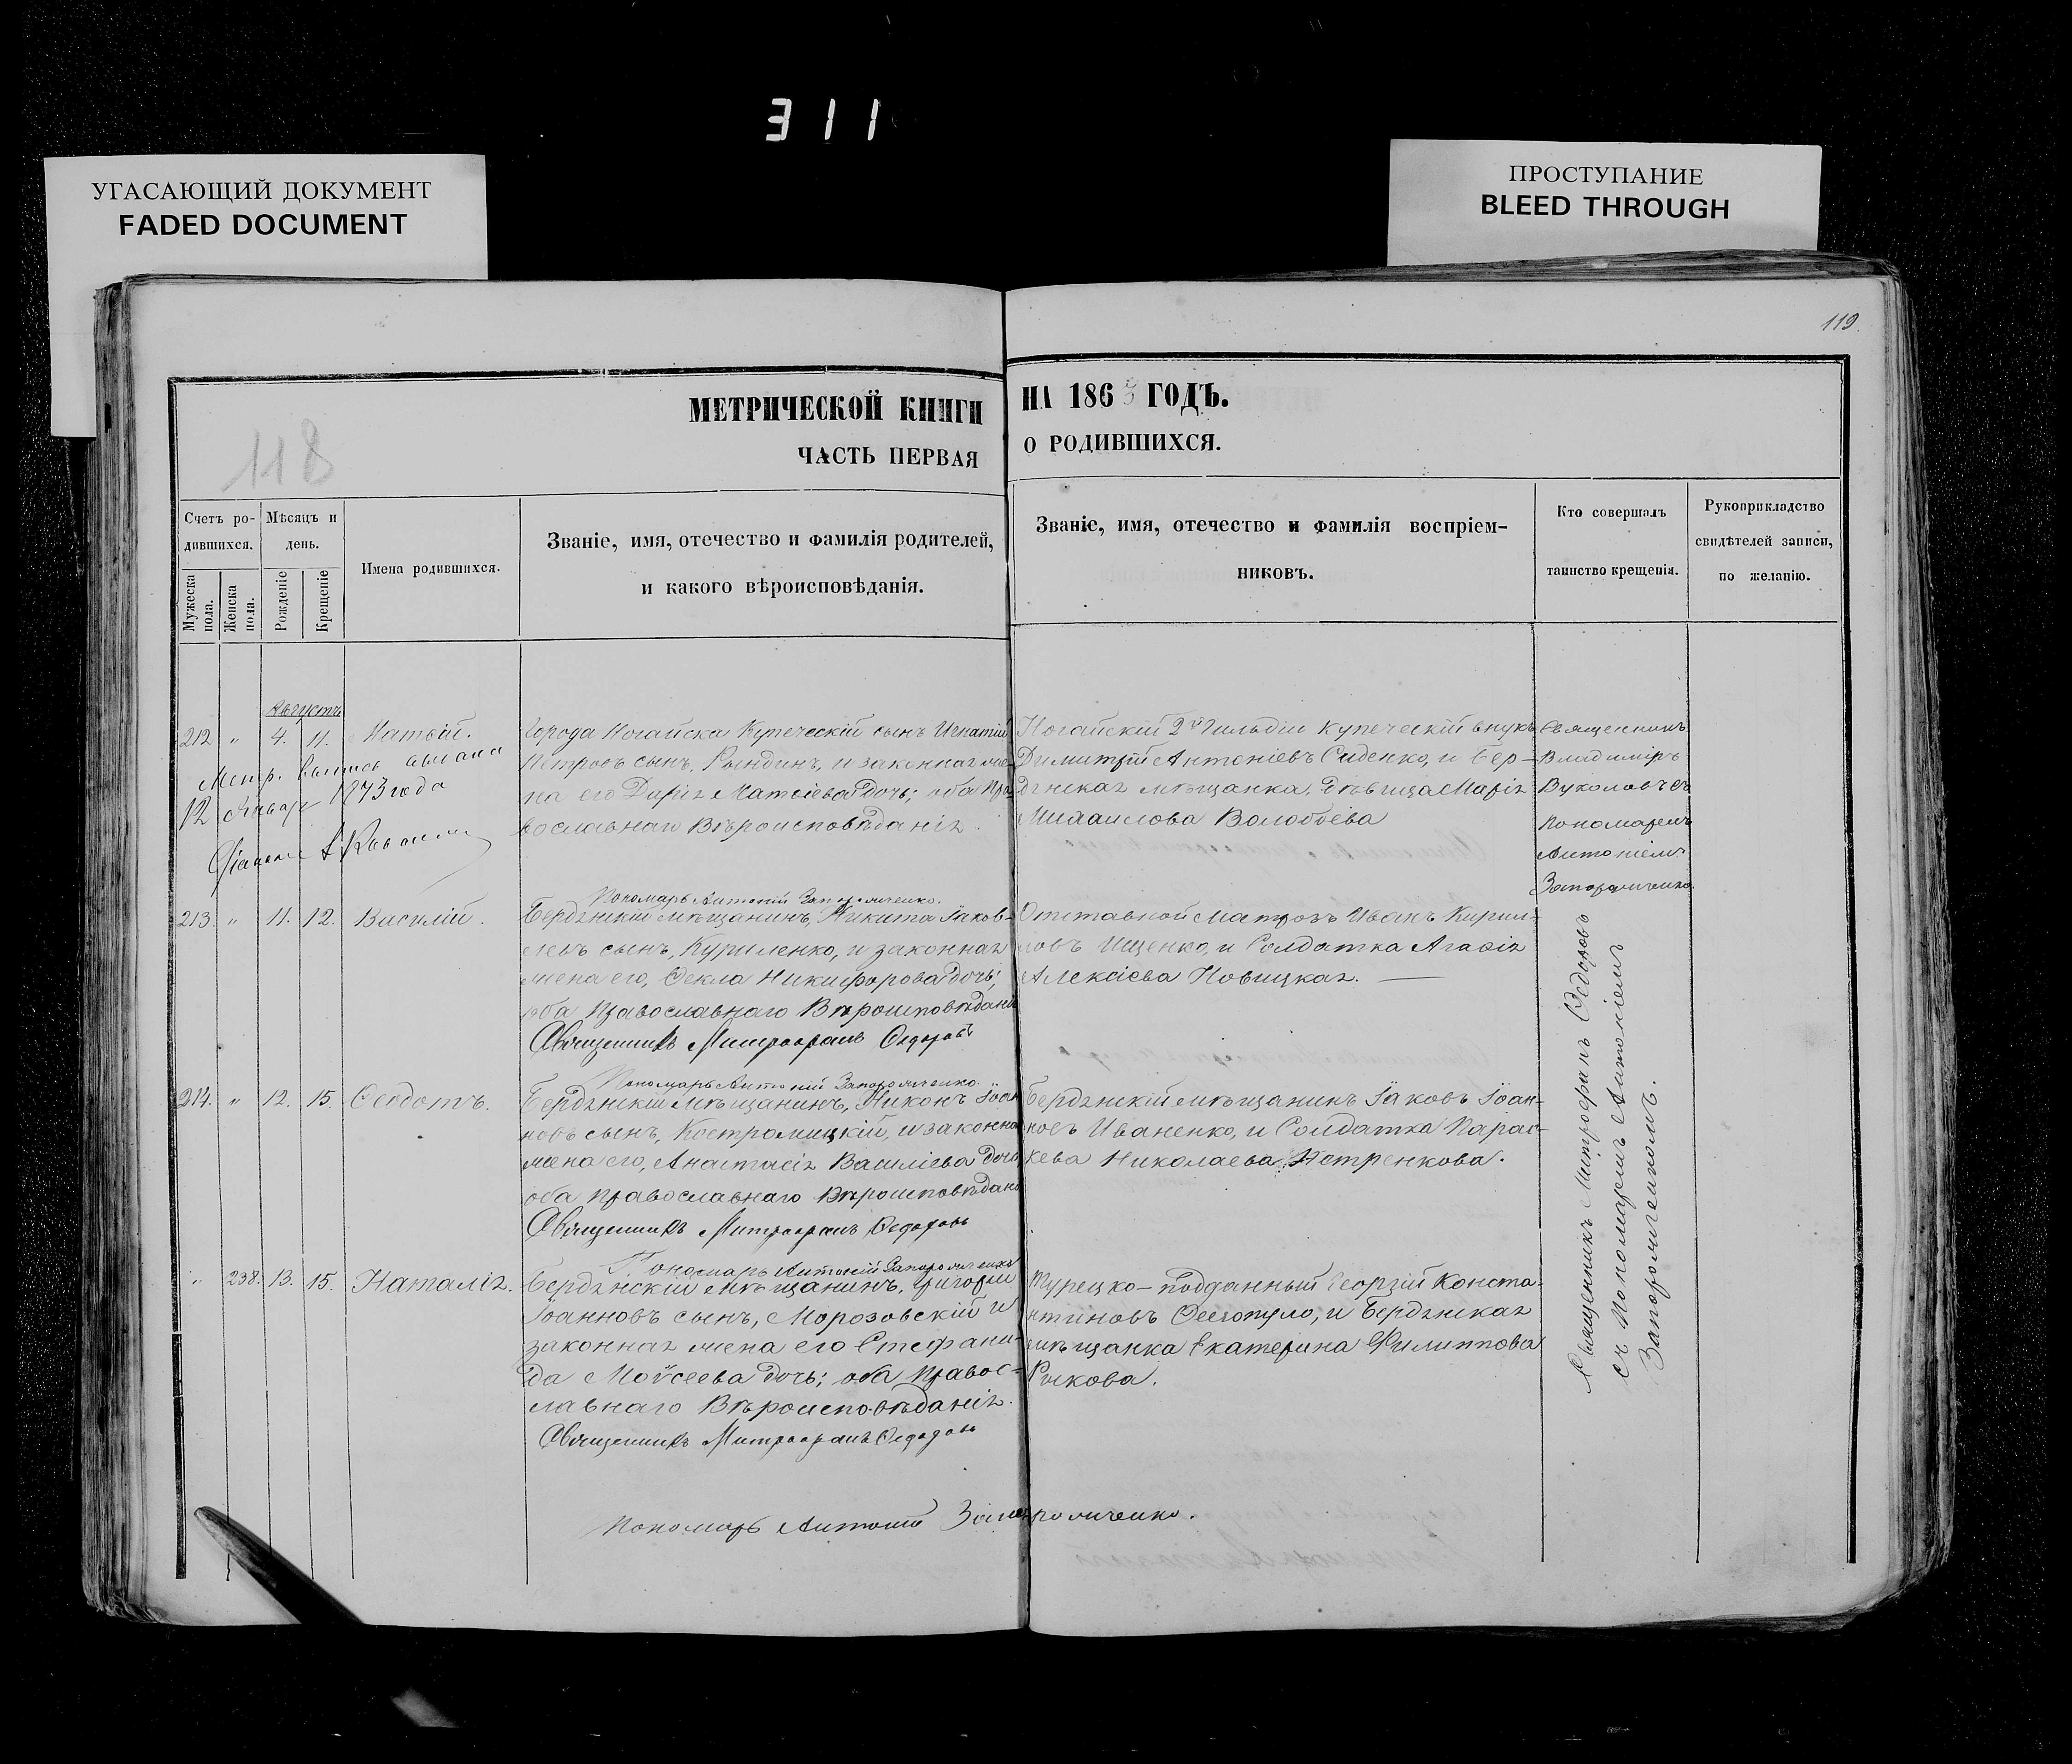 311
УГАСАЮЩИЙ ДОКУМЕНТ
FADED DOCUMENT
ПРОСТУПАНИЕ
BLEED THROUGH
119
118
МЕТРИЧЕСКОЙ КНИГИ НА 186 ГОДЪ.
ЧАСТЬ ПЕРВАЯ О РОДИВШИХСЯ.
Счетъ ро-
дившихся.
Мужеска
пола.
Женска
пола.
Мѣсяцъ и
день.
Рожденіе
Крещеніе
Имена родившихся.
Званіе, имя, отечество и фамилія родителей,
и какого вѣроисповѣданія.
Званіе, имя, отечество и фамилія воспріем-
никовъ.
Кто совершалъ
таинство крещенія.
Рукоприкладство
свидѣтелей записи,
по желанію.
Августъ
212 " 4. 11. Матѳій.
Метр. выпись выдана
12 Января 1873 года
Города Ногайска Купеческій сынъ Игнатій
Петровъ сынъ, Рындинъ, и законная же-
на его Дарія Матѳіева дочь; оба Пра-
вославнаго Вѣроисповѣданія.
Ногайскій 2й Гильдіи Купеческій внукъ
Димитрій Антоніевъ Сиденко, и Бер-
дянская мѣщанка, дѣвица Марія
Михаилова Волобоева
Священникъ
Владиміръ
Вуколовъ съ
Пономаремъ
Антоніемъ
Запорожченко.
Пономарь Антоній Запорожченко.
213. " 11. 12. Василій.
Бердянскій Мѣщанинъ, Никита Іаков-
левъ сынъ, Куриленко, и законная
жена его, Ѳекла Никифорова дочь;
оба Православнаго Вѣроисповѣданія
Священникъ Митрофанъ Ѳедоровъ
Отставной Матрозъ Иванъ Кирил-
ловъ Ищенко, и Солдатка Агаѳія
Алексіева Новицкая.
Пономарь Антоній Запорожченко.
214. " 12. 15. Ѳеодотъ.
Бердянскій Мѣщанинъ, Никонъ Іоан-
новъ сынъ, Костромицкій, и законная
жена его, Анастасія Василіева дочь
оба Православнаго Вѣроисповѣданія
Священникъ Митрофанъ Ѳедоровъ
Бердянскій мѣщанинъ Іаковъ Іоан-
новъ Иваненко, и Солдатка Парас-
кева Николаева Петренкова.
Пономарь Антоній Запорожченко
" 238. 13. 15. Наталія.
Бердянскій Мѣщанинъ, Григорій
Іоанновъ сынъ, Морозовскій и
законная жена его Стефани-
да Моѵсеева дочь; оба Правос-
лавнаго Вѣроисповѣданія.
Священникъ Митрофанъ Ѳедоровъ
Турецко-подданный Георгій Конста-
нтиновъ и Бердянская
мѣщанка Екатерина Филиппова
Рыкова.
Священникъ Митрофанъ Ѳедоровъ
съ Пономаремъ Антоніемъ
Запорожченкомъ.
Пономарь Антоній Запорожченко.